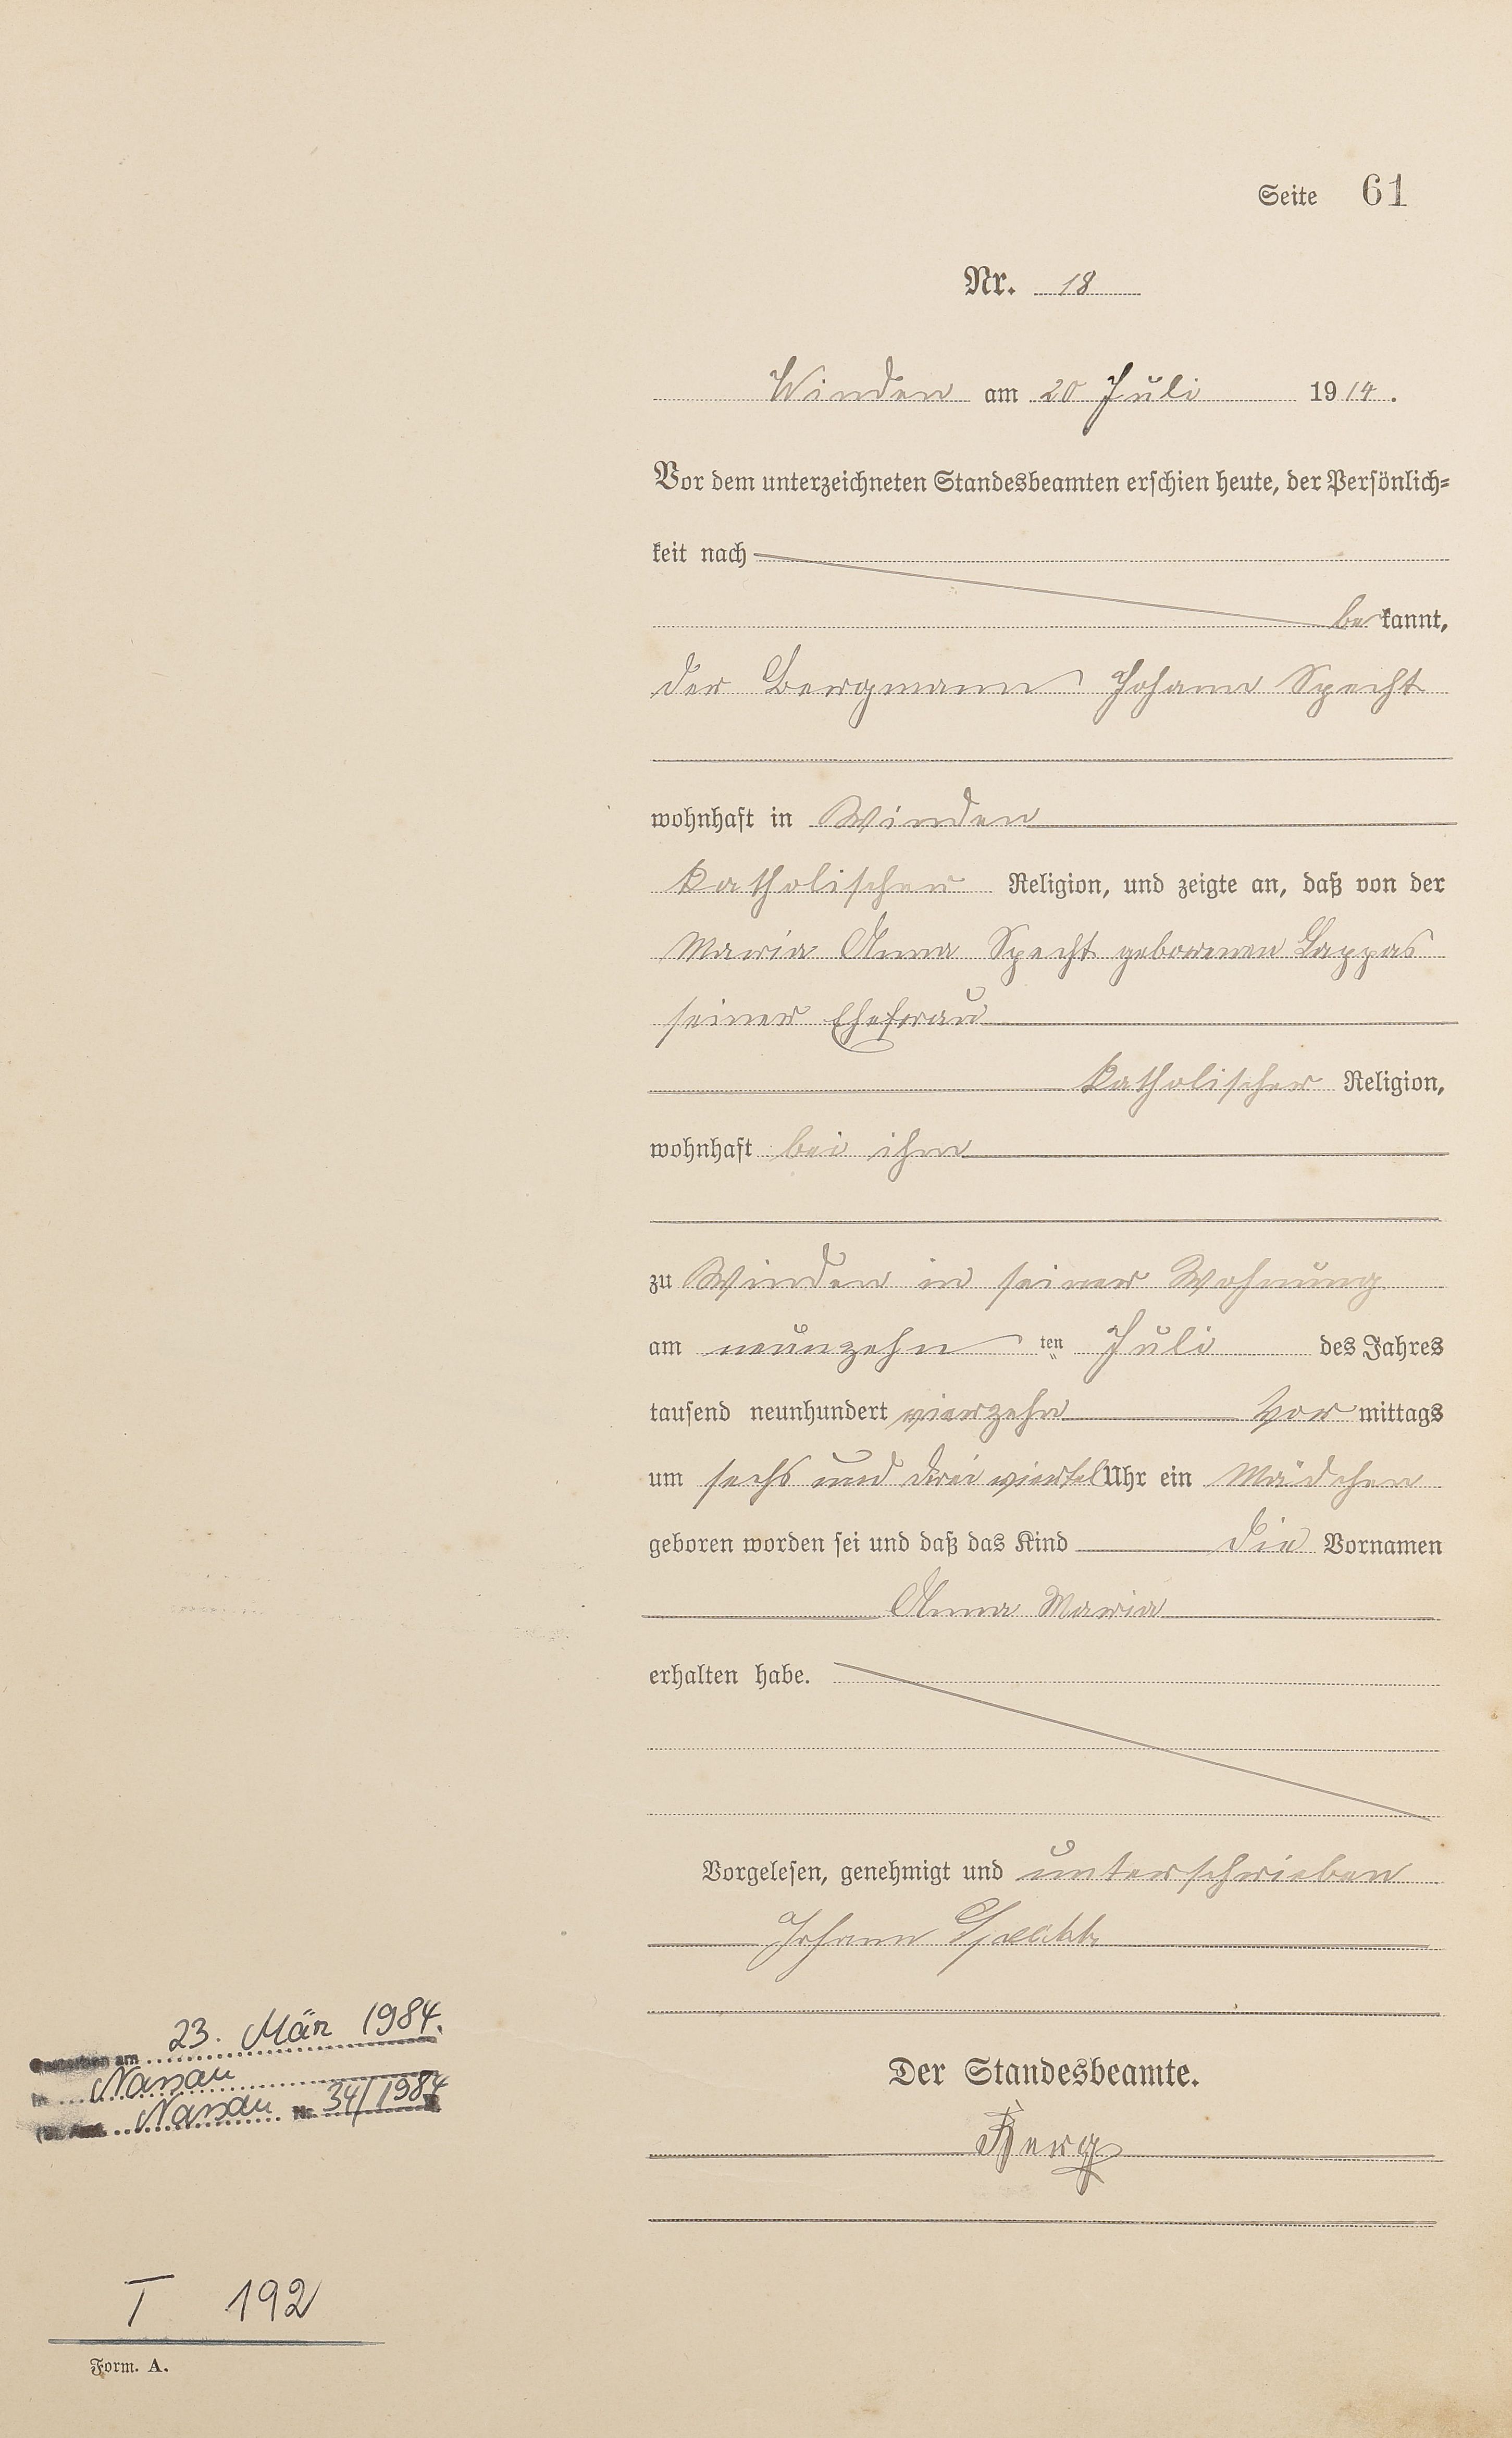 Seite 61
Nr. 18
Winden am 20 Juli 1914.
Vor dem unterzeichneten Standesbeamten erschien heute, der Persönlich-
keit nach
bekannt,
der Bergmann Johann Specht
wohnhaft in Winden
katholischer Religion, und zeigte an, daß von der
Maria Anna Specht geborenen Lappas
seiner Ehefrau
katholischer Religion,
wohnhaft bei ihm
zu Winden in seiner Wohnung
am neunzehnten Juli des Jahres
tausend neunhundert vierzehn Vormittags
um sechs und drei viertel Uhr ein Mädchen
geboren worden sei und daß das Kind die Vornamen
Anna Maria
erhalten habe.
Vorgelesen, genehmigt und unterschrieben
Johann Specht
Der Standesbeamte.
Berg
Gestorben am 23. März 1984.
in Nassau
(St. Amt. Nassau Nr. 34/1984
T 192
Form. A.